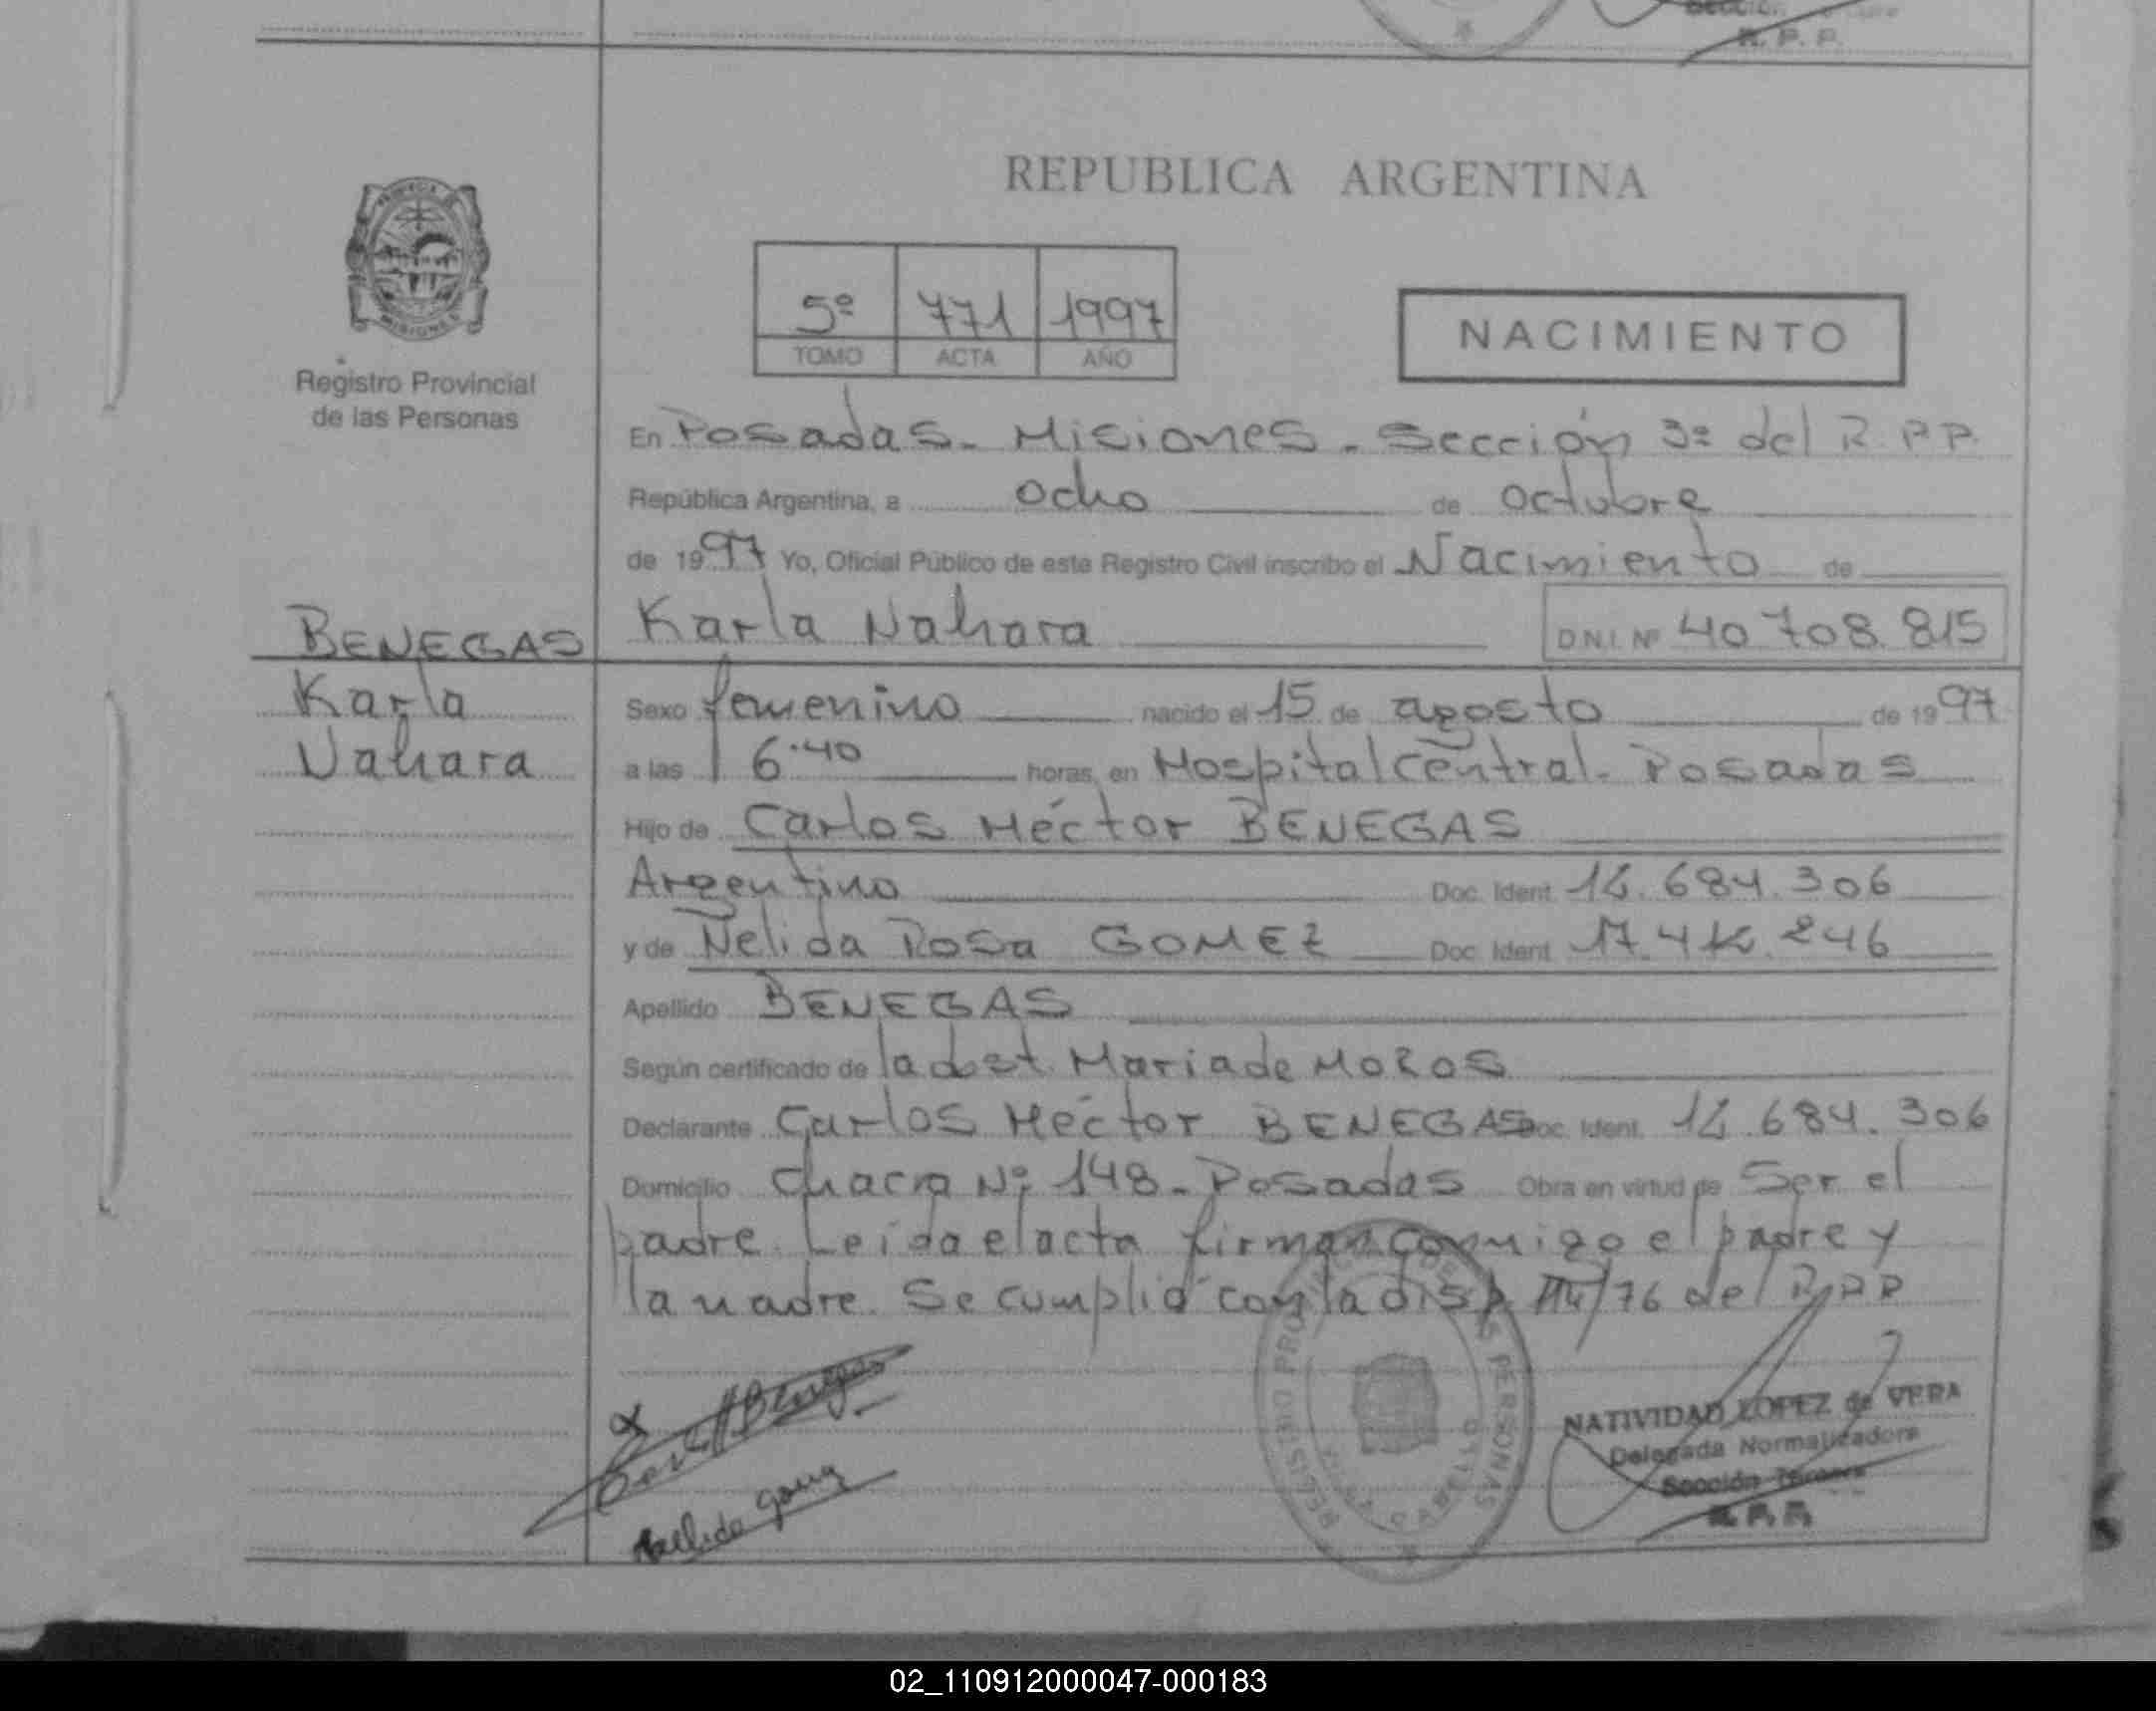 Sección
R. P. P.
REPUBLICA ARGENTINA
5º 771 1997
TOMO ACTA AÑO
NACIMIENTO
MISIONES
Registro Provincial
de las Personas
En Posadas - Misiones - Sección 3ª del R.P.P.
República Argentina, a ocho de octubre
de 1997 Yo, Oficial Público de este Registro Civil inscribo el Nacimiento de
BENEGAS Karla Nahara D.N.I. Nº 40 708 815
Karla
Nahara
Sexo femenino nacido el 15 de agosto de 1997
a las 6.40 horas, en Hospital Central - Posadas
Hijo de Carlos Héctor BENEGAS
Argentino Doc. Ident. 684.306
y de Nelida Rosa GOMEZ Doc. Ident. 246
Apellido BENEGAS
Según certificado de la obst. Maria de MOROS
Declarante Carlos Héctor BENEGAS Doc. Ident. 684.306
Domicilio Chacra Nº 148 - Posadas Obra en virtud de Ser el
padre. Leida el acta firman conmigo el padre y
la madre. Se cumplió con la disp. /76 del R.P.P
Benegas
Nelida Gomez
REGISTRO PROVINCIAL DE LAS PERSONAS
NATIVIDAD LOPEZ de VERA
Delegada Normalizadora
Sección Tercera
R.P.P.
02_110912000047-000183